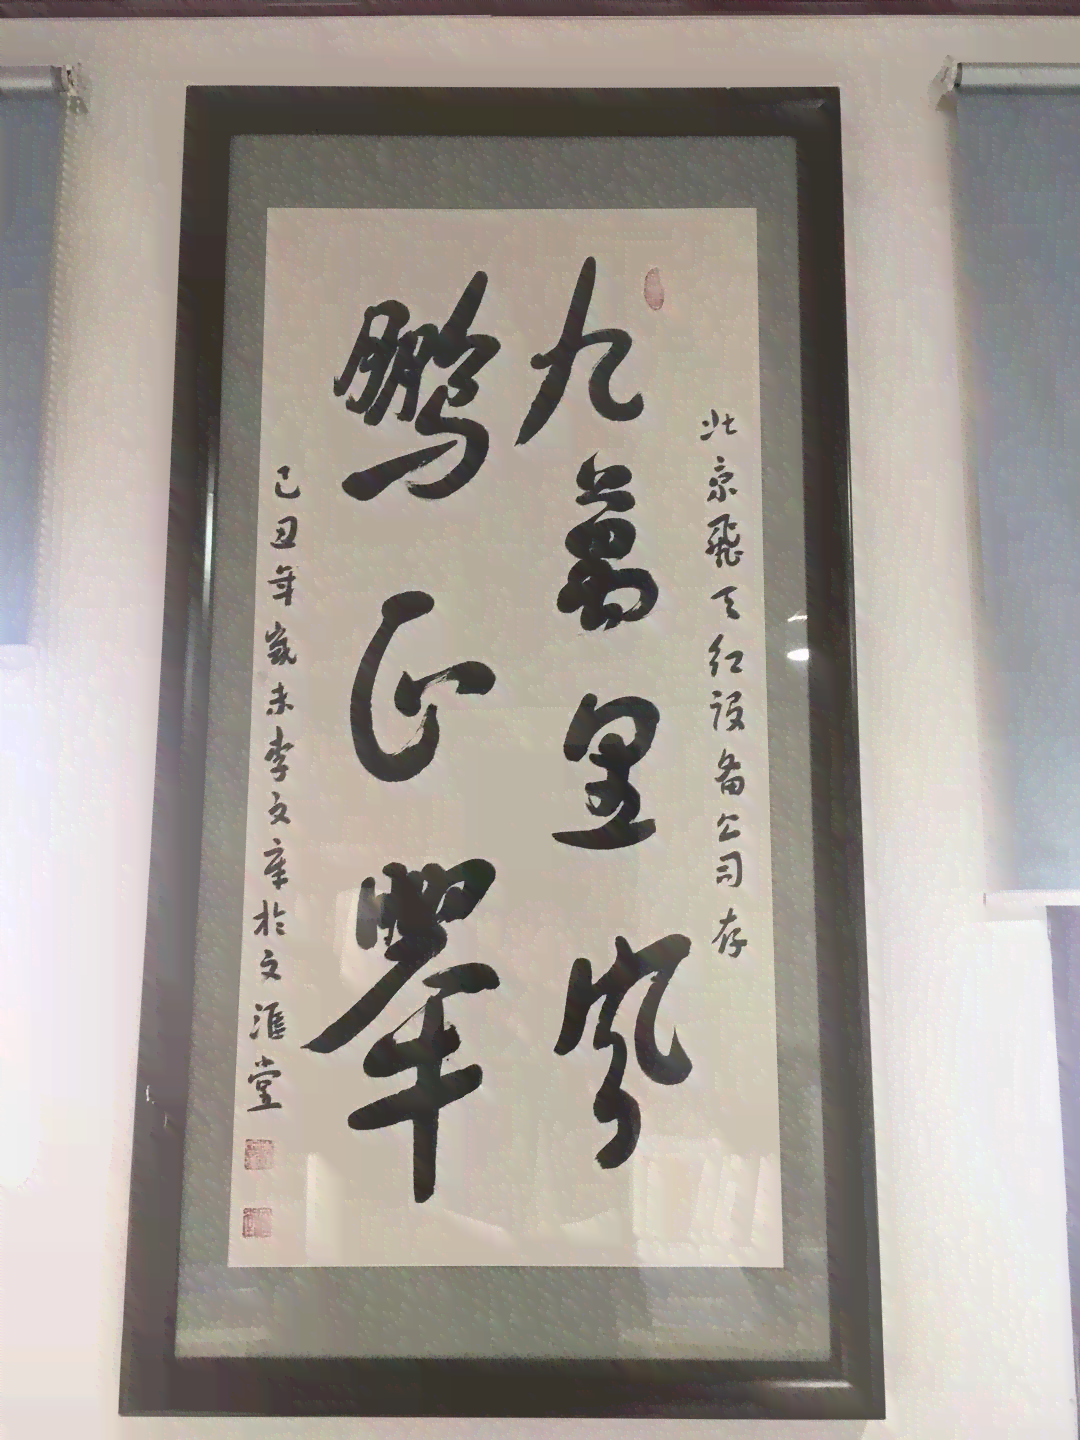 北京飛天红设备公司存
九萬里風
鵬正舉
己丑年歲末李文章於文滙堂